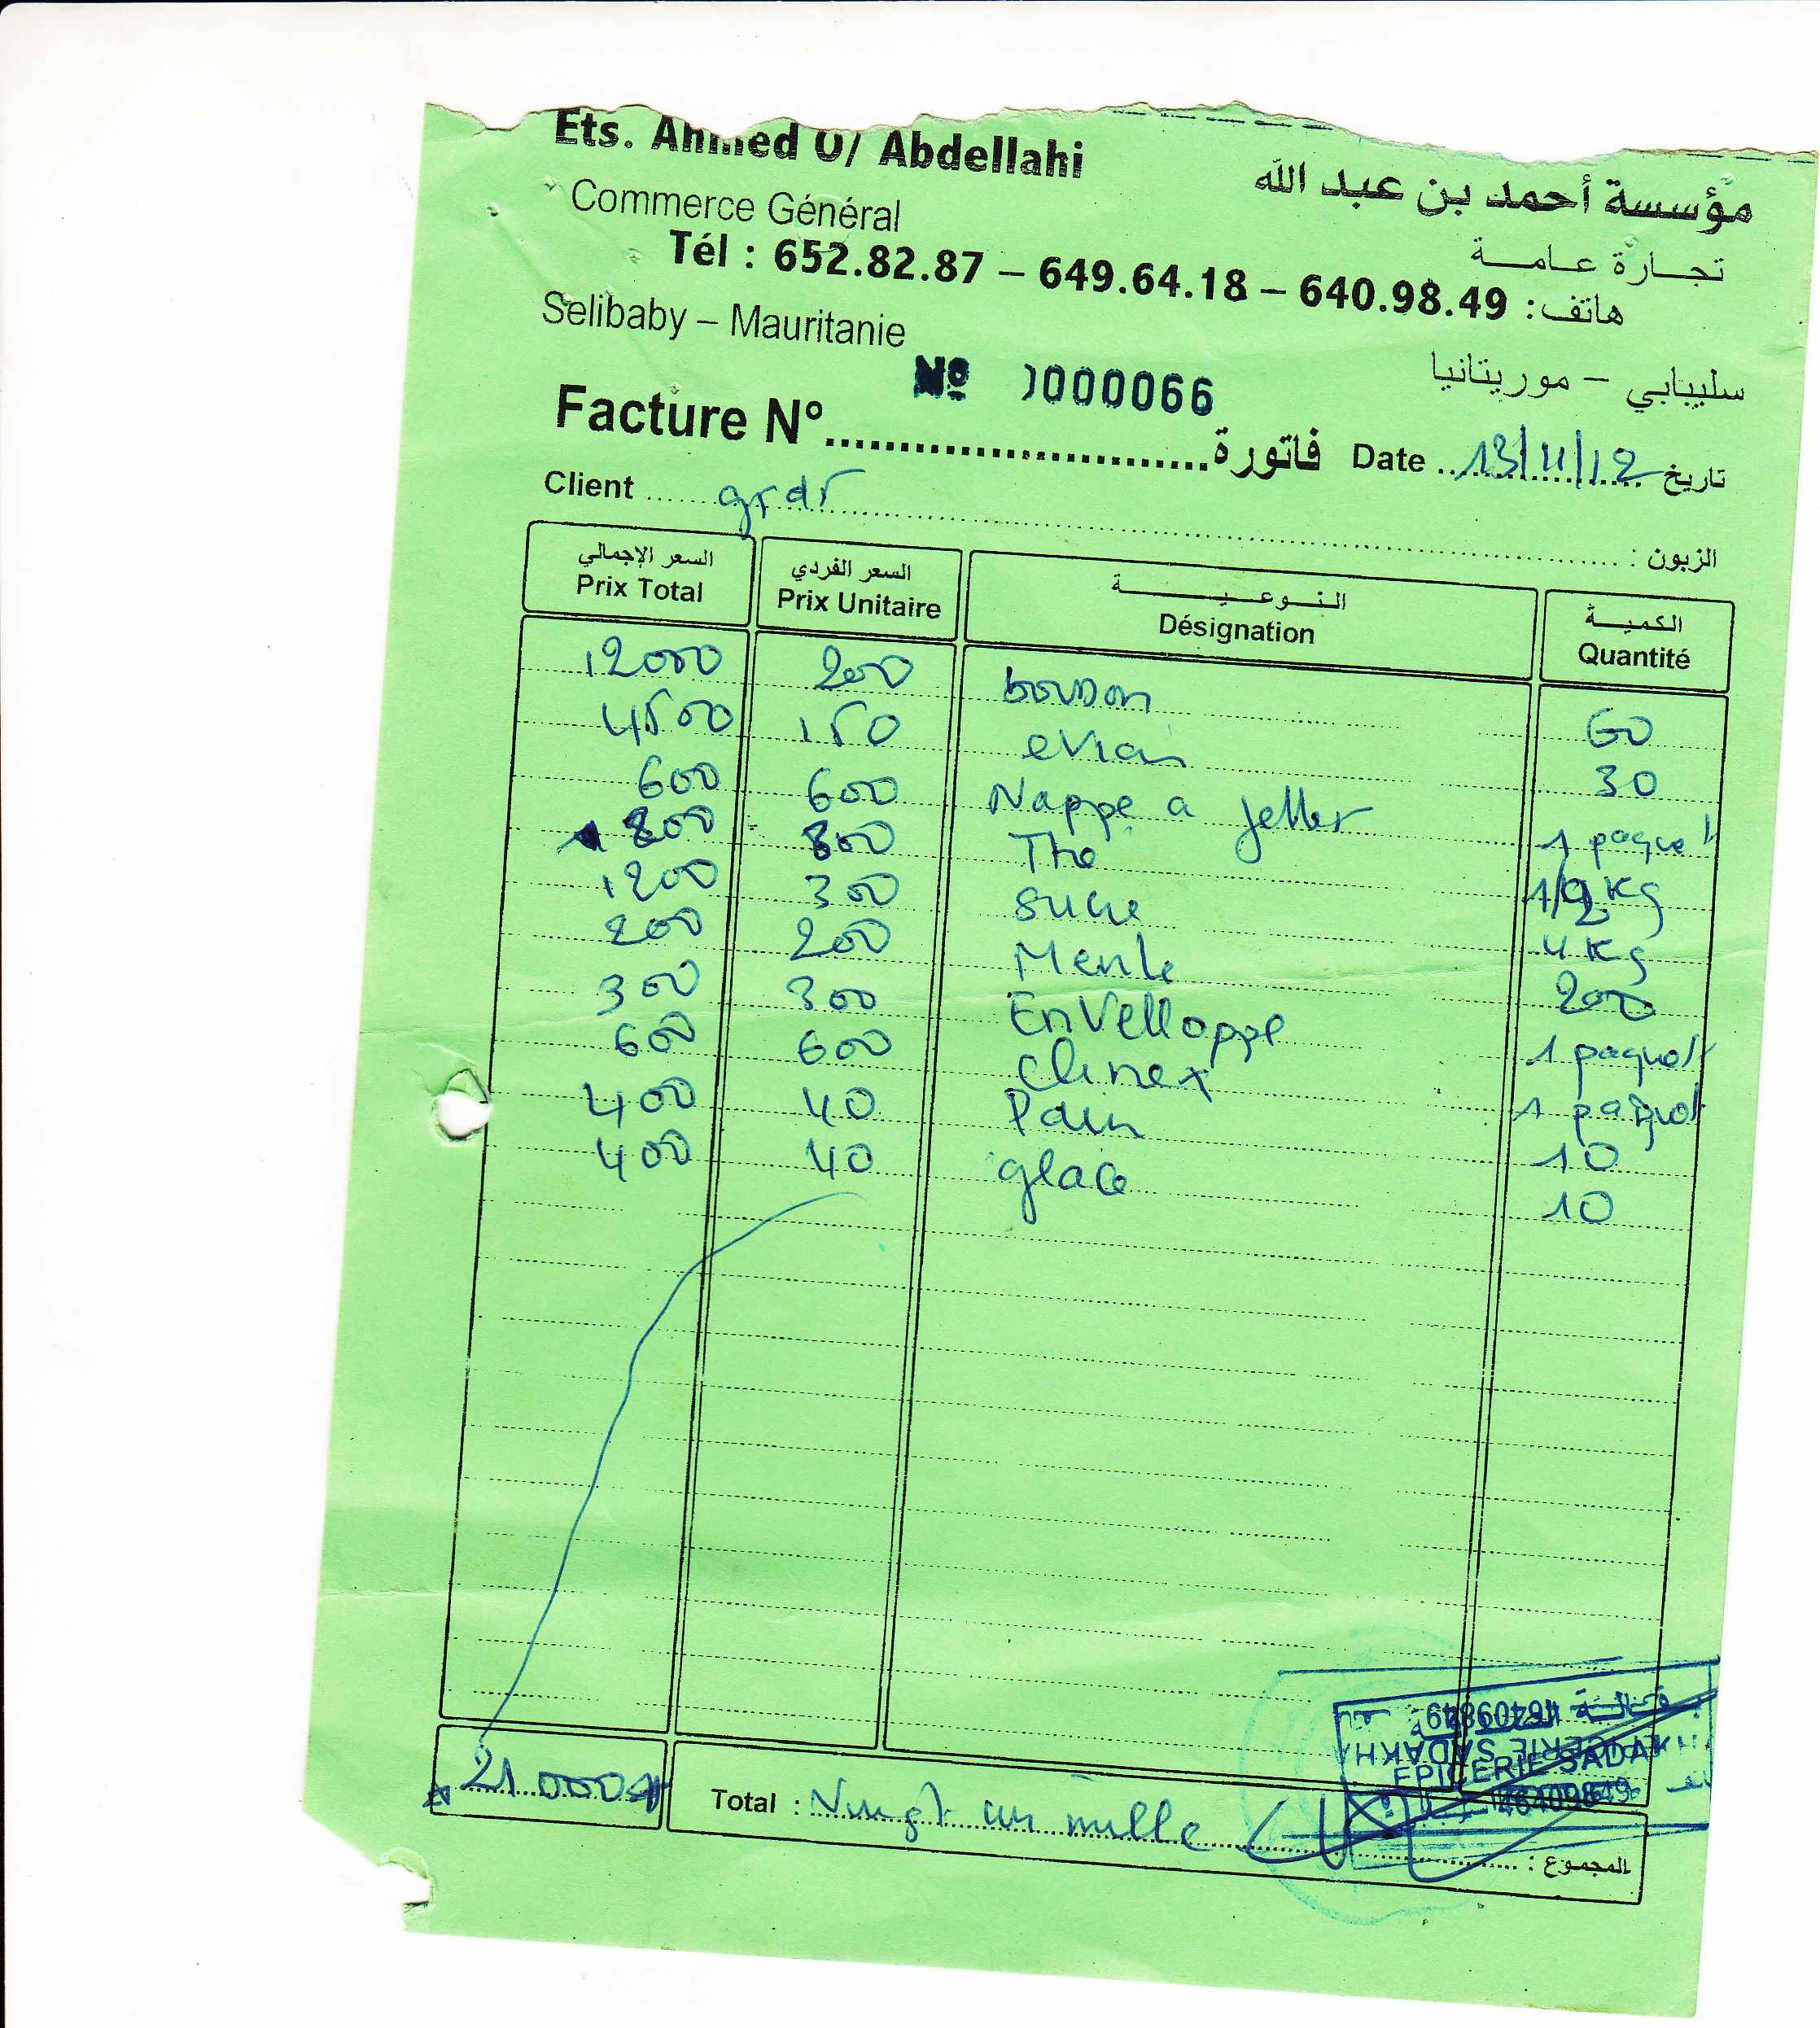 Ets. Ahmed O/ Abdellahi
مؤسسة أحمد بن عبد الله
Commerce Général
تجارة عامة
Tél : 652.82.87 – 649.64.18 – 640.98.49 هاتف:
Selibaby – Mauritanie
سليبابي – موريتانيا
Nº 0000066
Facture N° فاتورة Date 13/11/12 تاريخ
Client grdr الزبون :
السعر الإجمالي السعر الفردي النوعية الكمية
Prix Total Prix Unitaire Désignation Quantité
12000 200 boisson 60
4500 150 evian 30
600 600 Nappe a jetter 1 paquet
800 800 The 1/2 Kg
1200 300 sucre 4 Kg
200 200 Menthe 200
300 300 EnVelloppe 1 paquet
600 600 Clinex 1 paquet
400 40 Pain 10
400 40 glace 10
21000 Total : Vingt un mille المجموع :
EPICERIE SADAKHA
46409849